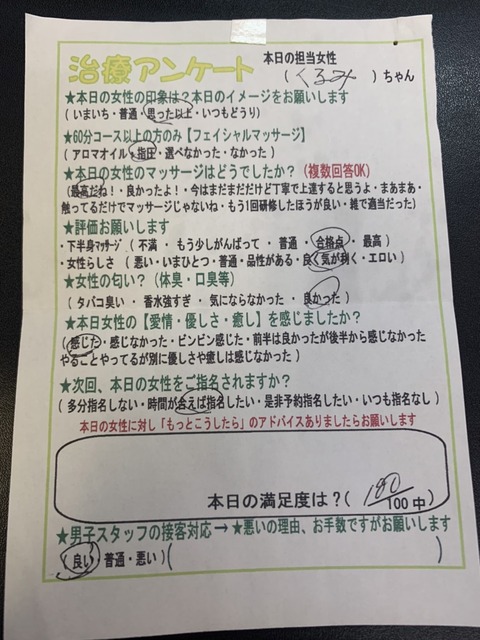 治療アンケート
本日の担当女性
( くるみ )ちゃん
★本日の女性の印象は？本日のイメージをお願いします
( いまいち・普通・思った以上・いつもどうり )
★60分コース以上の方のみ【フェイシャルマッサージ】
( アロマオイル・指圧・選べなかった・なかった )
★本日の女性のマッサージはどうでしたか？(複数回答OK)
(最高だね！・良かったよ！・今はまだまだだけど丁寧で上達すると思うよ・まあまあ・
触ってるだけでマッサージじゃないね・もう1回研修したほうが良い・雑で適当だった)
★評価お願いします
・下半身マッサージ ( 不満 ・ もう少しがんばって ・ 普通 ・ 合格点 ・ 最高 )
・女性らしさ ( 悪い・いまひとつ・普通・品性がある・良く気が利く・エロい )
★女性の匂い？ (体臭・口臭等)
( タバコ臭い ・ 香水強すぎ ・ 気にならなかった ・ 良かった )
★本日女性の【愛情・優しさ・癒し】を感じましたか？
(感じた・感じなかった・ビンビン感じた・前半は良かったが後半から感じなかった・
やることやってるが別に優しさや癒しは感じなかった)
★次回、本日の女性をご指名されますか？
( 多分指名しない・時間が合えば指名したい・是非予約指名したい・いつも指名なし )
本日の女性に対し「もっとこうしたら」のアドバイスありましたらお願いします
本日の満足度は？( 100中 )
★男子スタッフの接客対応 → ★悪いの理由、お手数ですがお願いします
( 良い・普通・悪い )( )